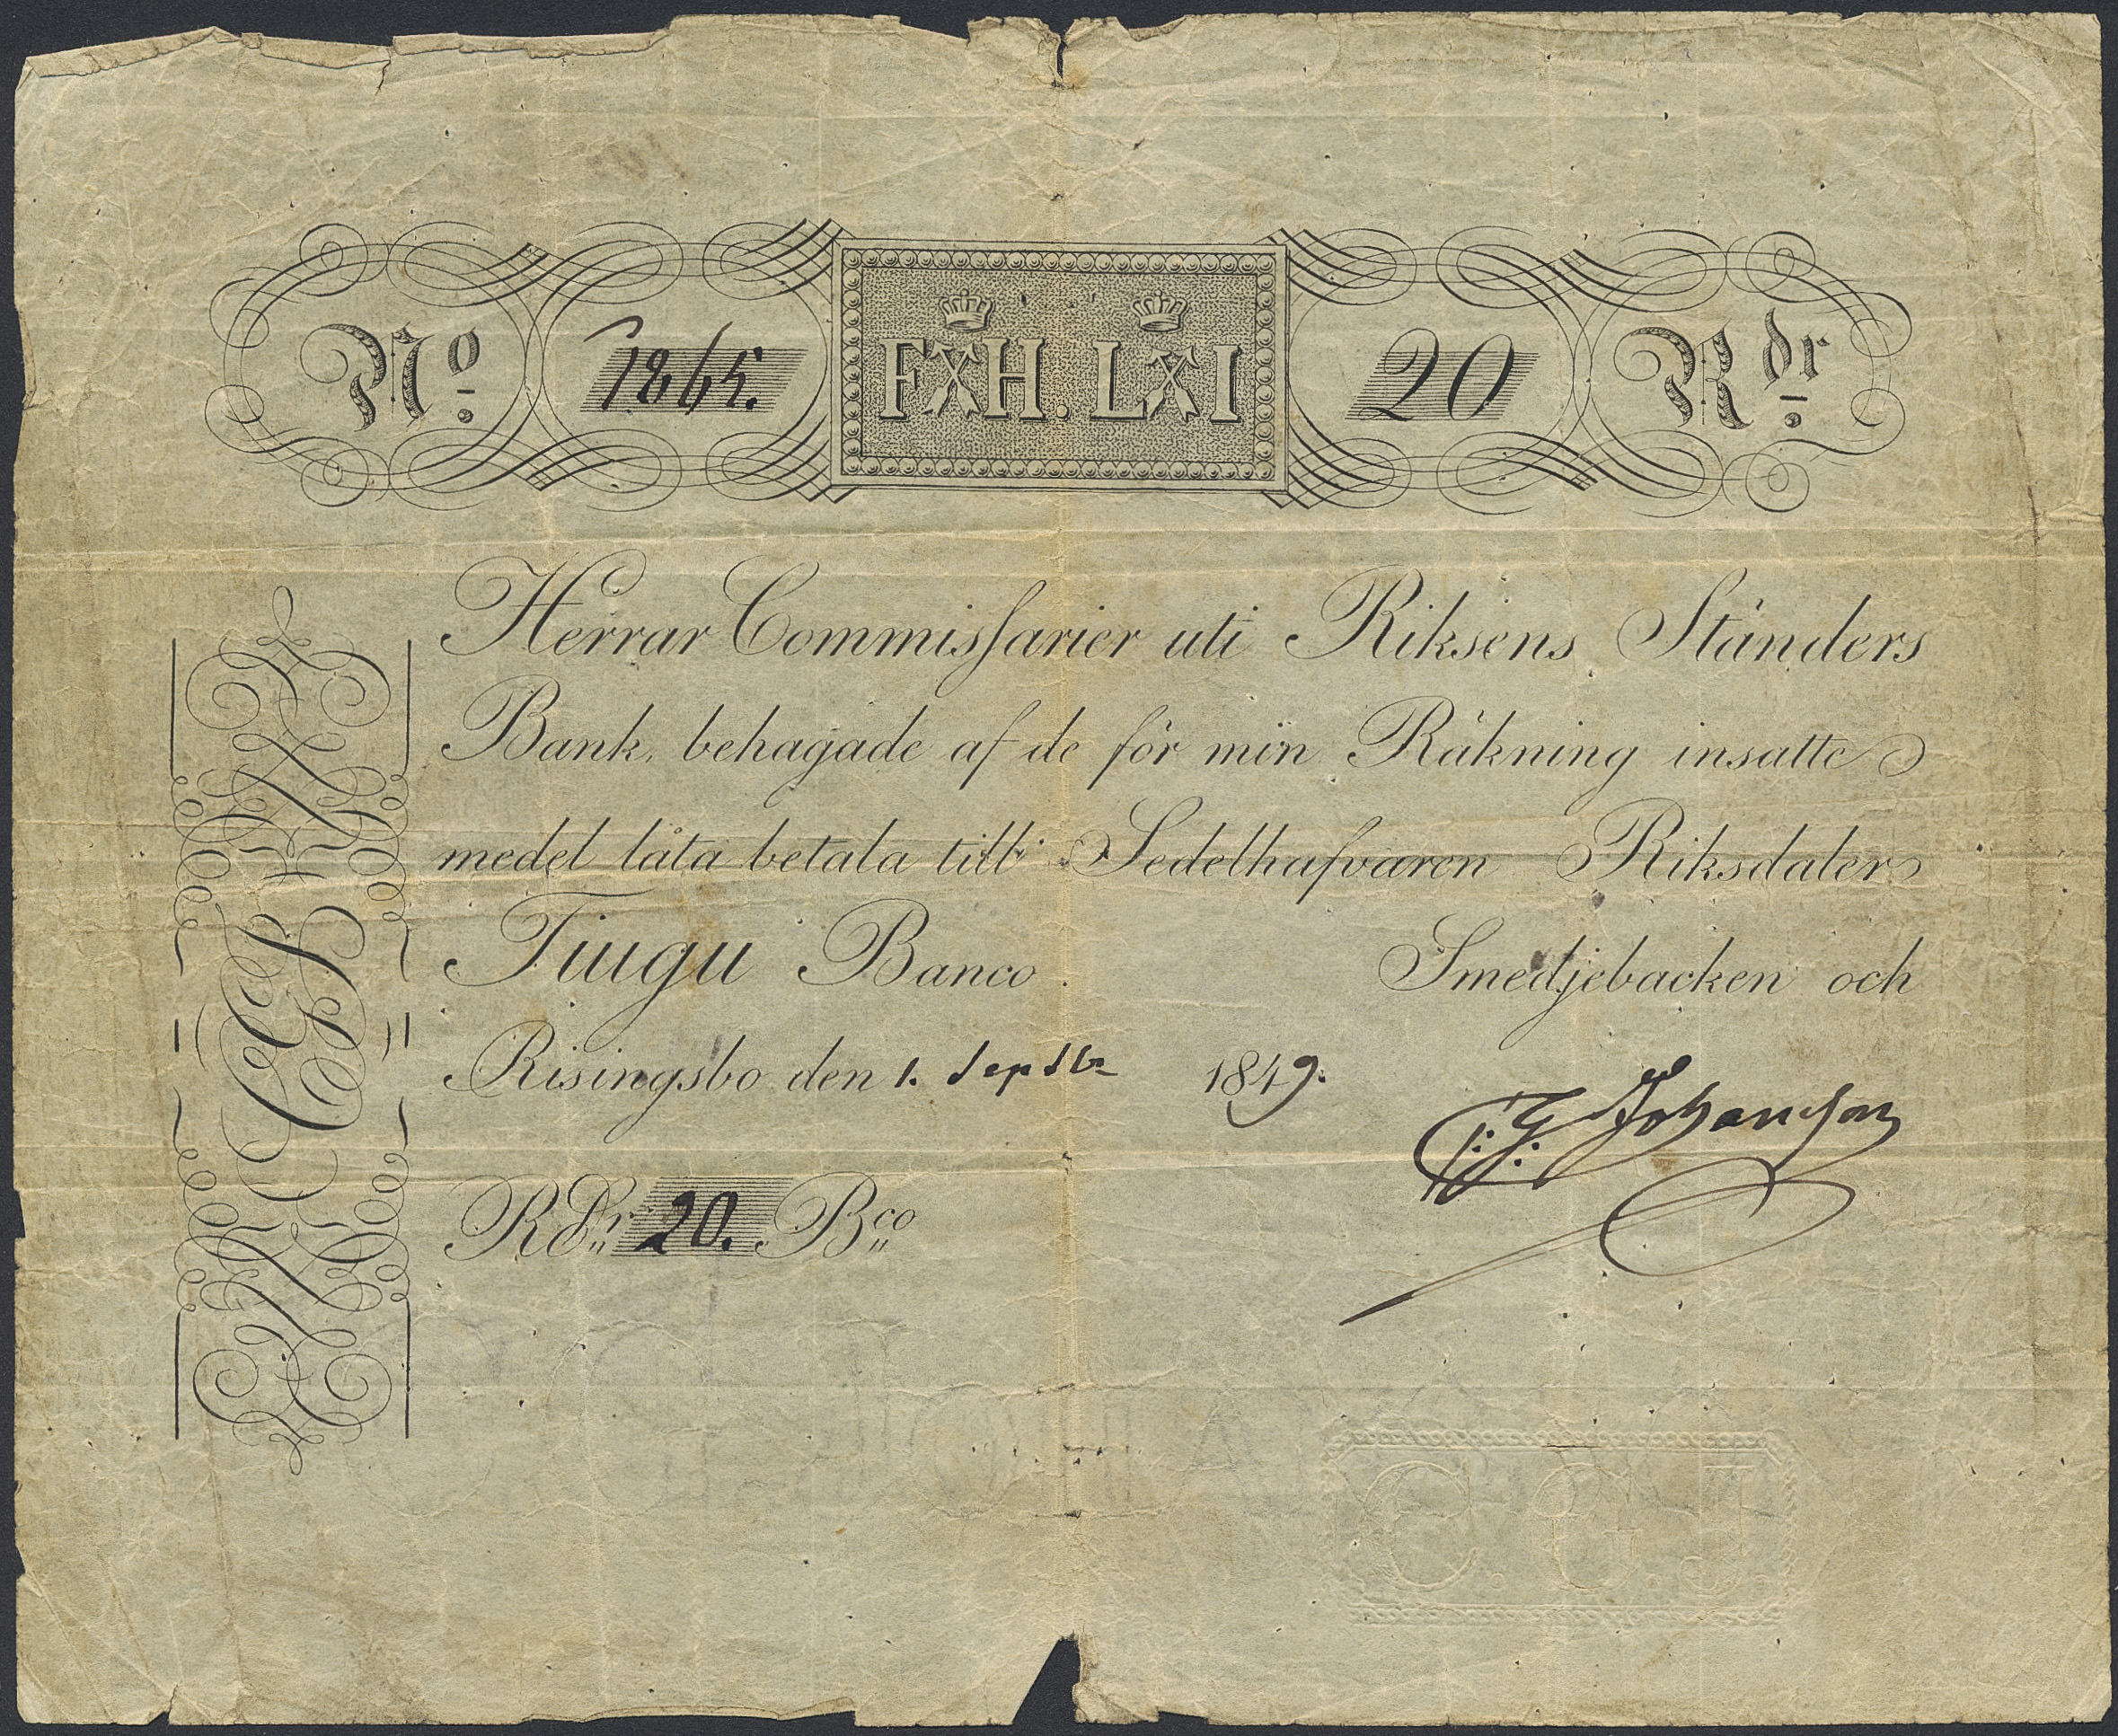 No 1865. FXH. LXI 20 Rdr
Herrar Commissarier uti Riksens Ständers
Bank, behagade af de för min Räkning insatte
medel låta betala till Sedelhafvaren Riksdaler
Tiugu Banco. Smedjebacken och
Risingsbo den 1. Septbr 1849.
C: G: Johanson
RDr 20. Bco
C. G. J.